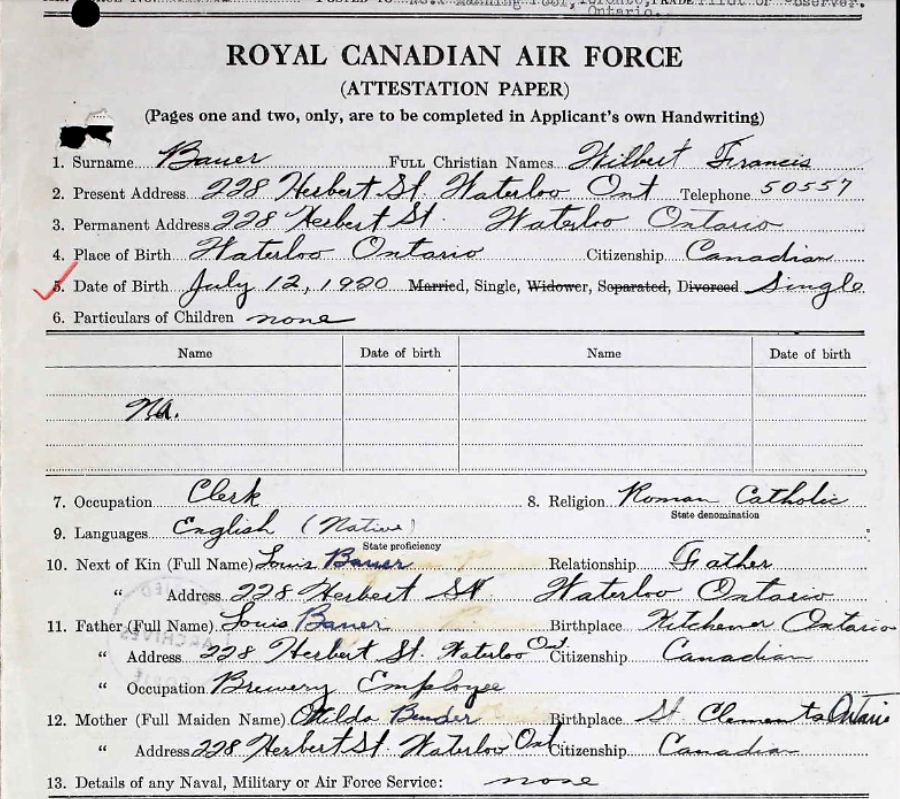 POSTED TO No.1 Manning Pool, Toronto, TRADE Pilot or Observer.
Ontario.
ROYAL CANADIAN AIR FORCE
(ATTESTATION PAPER)
(Pages one and two, only, are to be completed in Applicant's own Handwriting)
1. Surname Bauer FULL Christian Names Wilbert Francis
2. Present Address 228 Herbert St. Waterloo Ont Telephone 50557
3. Permanent Address 228 Herbert St. Waterloo Ontario
4. Place of Birth Waterloo Ontario Citizenship Canadian
5. Date of Birth July 12, 1920 Married, Single, Widower, Separated, Divorced Single
6. Particulars of Children none
Name Date of birth Name Date of birth
Na.
7. Occupation Clerk 8. Religion Roman Catholic
State denomination
9. Languages English (Native)
State proficiency
10. Next of Kin (Full Name) Louis Bauer Relationship Father
" Address 228 Herbert St Waterloo Ontario
11. Father (Full Name) Louis Bauer Birthplace Kitchener Ontario
" Address 228 Herbert St. Waterloo Ont Citizenship Canadian
" Occupation Brewery Employee
12. Mother (Full Maiden Name) Otilda Bender Birthplace St. Clements Ontario
" Address 228 Herbert St. Waterloo Ont Citizenship Canadian
13. Details of any Naval, Military or Air Force Service: none